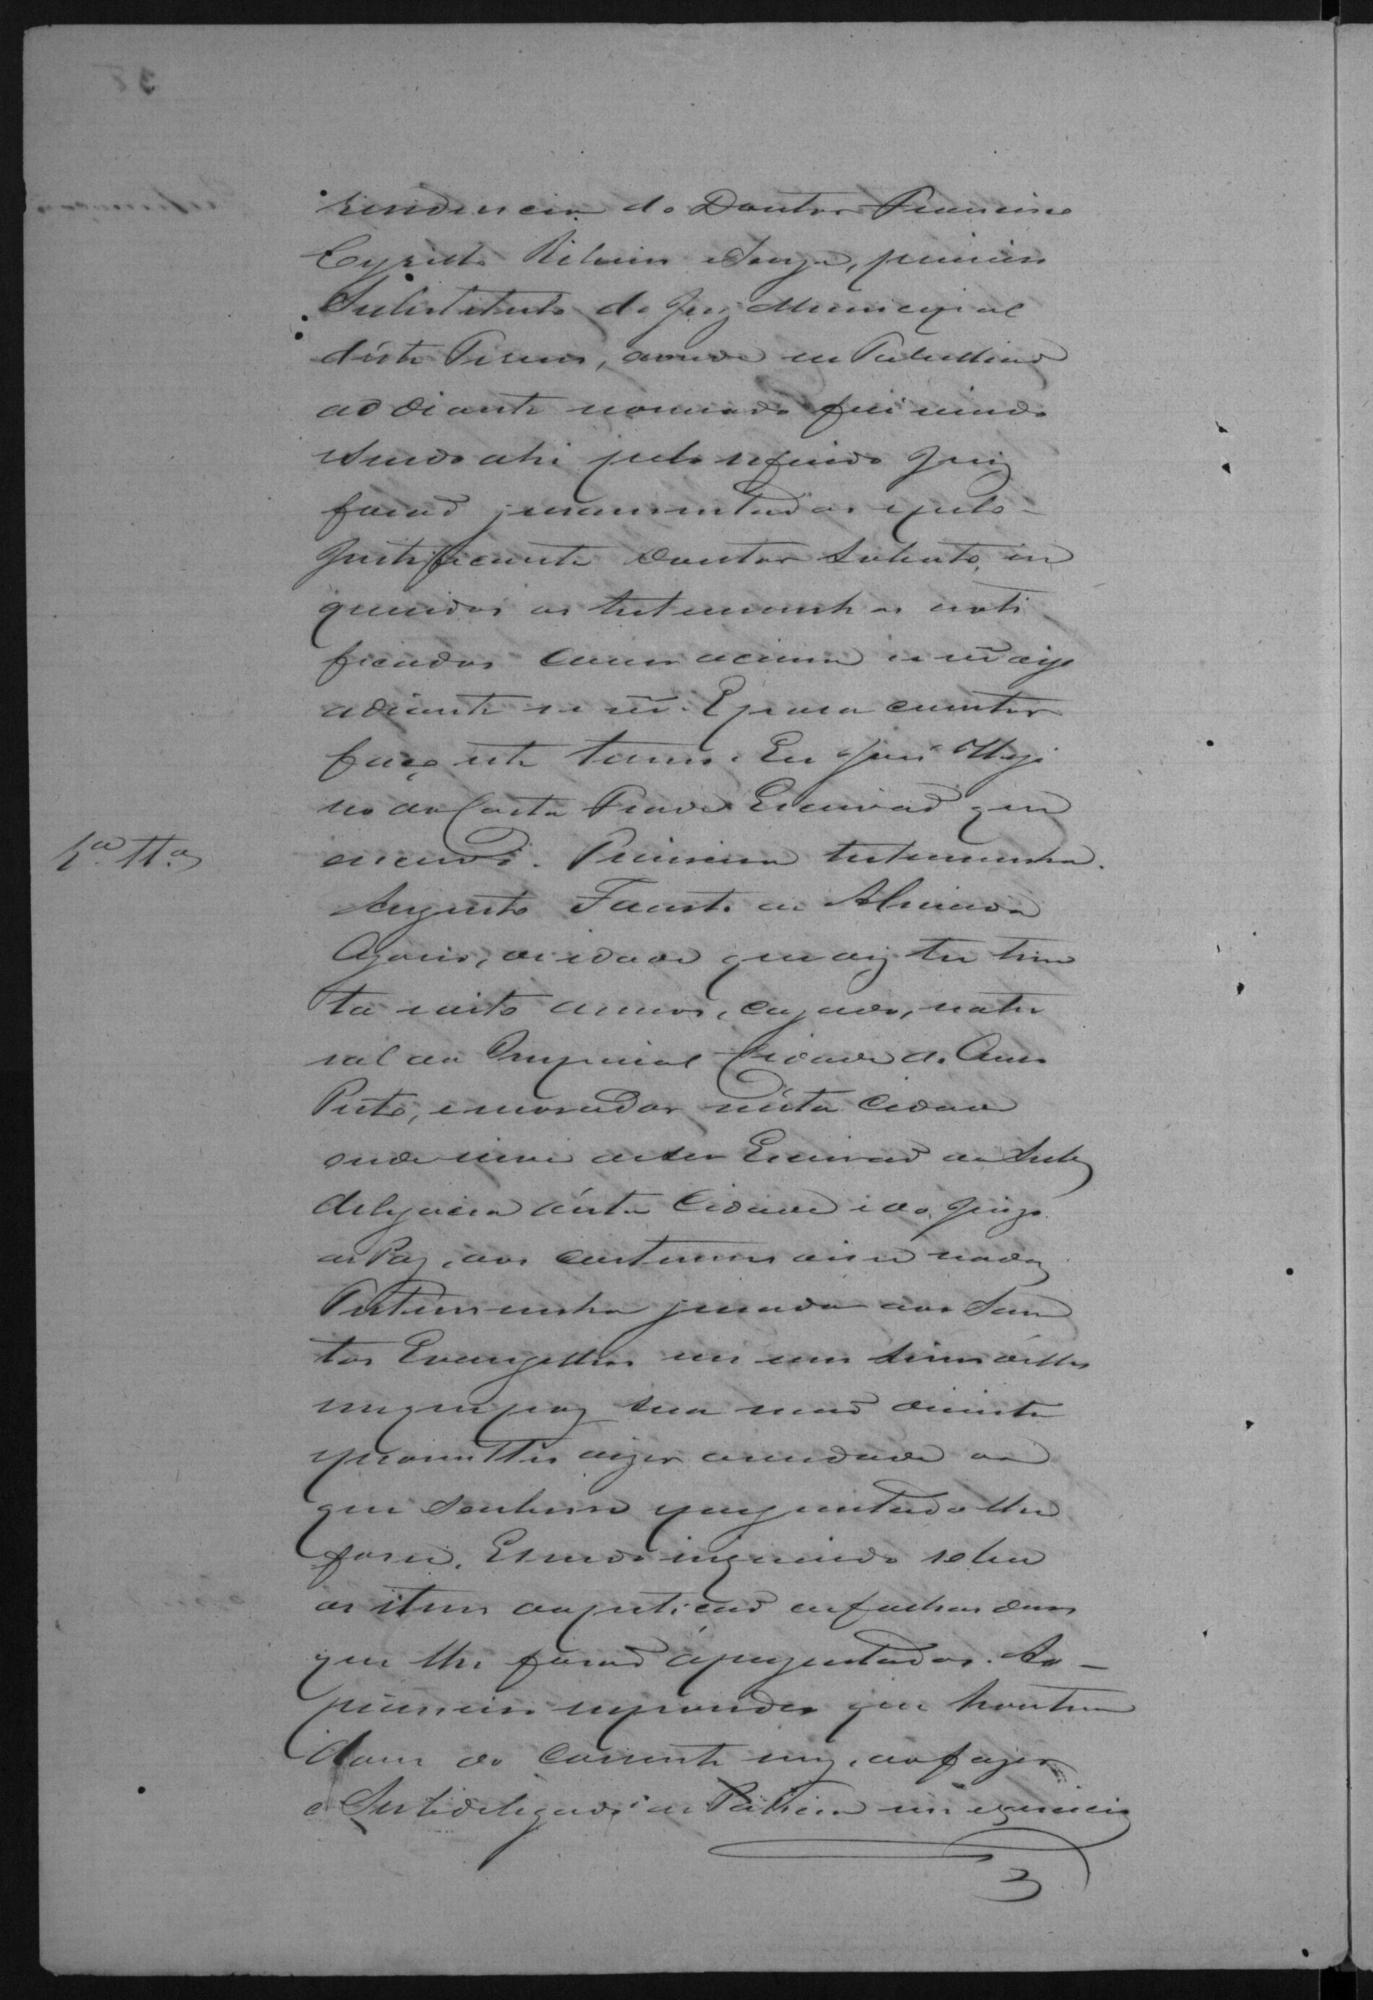 residencia do Doutor Francisco
Cyrillo Ribeiro e Souza, primeiro
Substituto do Juiz Municipal
deste Termo, aonde eu Tabelliaõ
ao diante nomeado fui vindo
e sendo ahi pelo referido Juiz
foraõ juramentadas e pelo
Justificante Doutor in
queridas as testemunhas noti
ficadas como acima se vê e ao
adiante se vê. E para constar
faço este termo. Eu José
no da Costa Escrivaõ que
escrevi. Primeira testemunha.
1.ª Tt.ª
Augusto Fausto de Almeida
de idade que diz ter trin
ta e oito annos, casado, natu
ral da Imperial Cidade de Ouro
Preto, e morador nesta Cidade
onde vive de ser Escrivaõ da Sub
delegacia desta Cidade e do Juizo
de Paz, aos costumes disse nada
Testemunha jurada aos San
tos Evangelhos em um livro delles
em que poz sua maõ direita
e prometteu dizer a verdade do
que soubesse e perguntado lhe
fosse. E sendo inquirido sobre
os itens da petiçaõ de folhas duas
que lhe foraõ perguntados. Ao
primeiro respondeu que
doze do corrente mez, ao fazer
o Subdelegado de Policia em exercicio
3